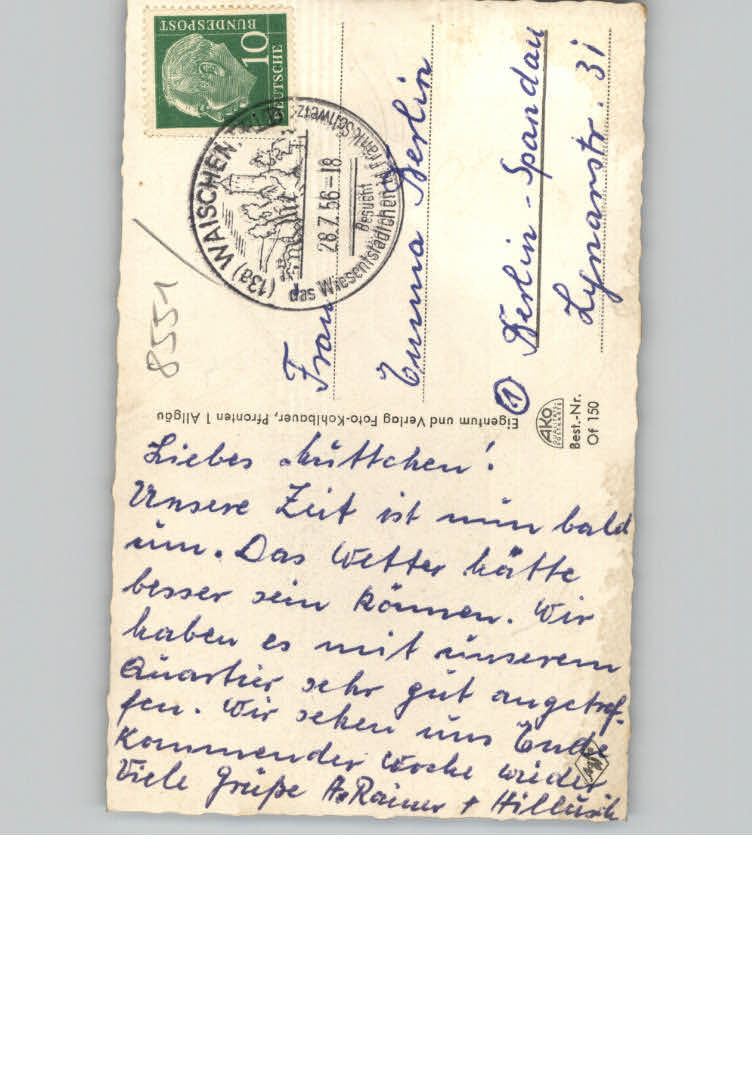 Liebes Muttchen!
Unsere Zeit ist nun bald
um. Das Wetter hätte
besser sein können. Wir
haben es mit unserem
Quartier sehr gut angetrof-
fen. Wir sehen uns Ende
kommender Woche wieder
Viele Grüße Rainer + 
Eigentum und Verlag Foto-Kohlbauer, Pfronten 1 Allgäu
AKO
Best.-Nr.
Of 150
DEUTSCHE
BUNDESPOST
10
(13a) WAISCHEN
28.7.56-18
Besucht
das Wiesentstädtchen Fränk. Schweiz
Frau
Emma Berlin
1 Berlin-Spandau
Lynarstr. 31
8551